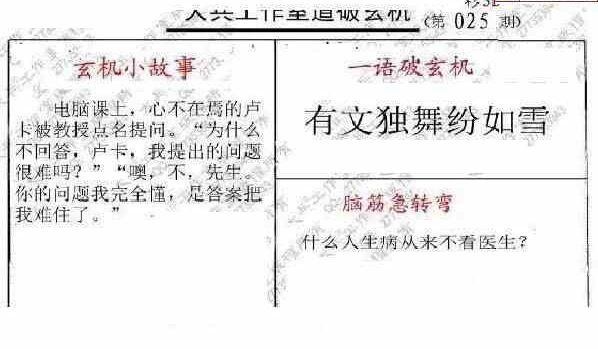 (第 025 期)
玄机小故事
电脑课上，心不在焉的卢
卡被教授点名提问。“为什么
不回答，卢卡，我提出的问题
很难吗？”“噢，不．先生。
你的问题我完全懂，是答案把
我难住了。”
一语破玄机
有文独舞纷如雪
脑筋急转弯
什么人生病从来不看医生？